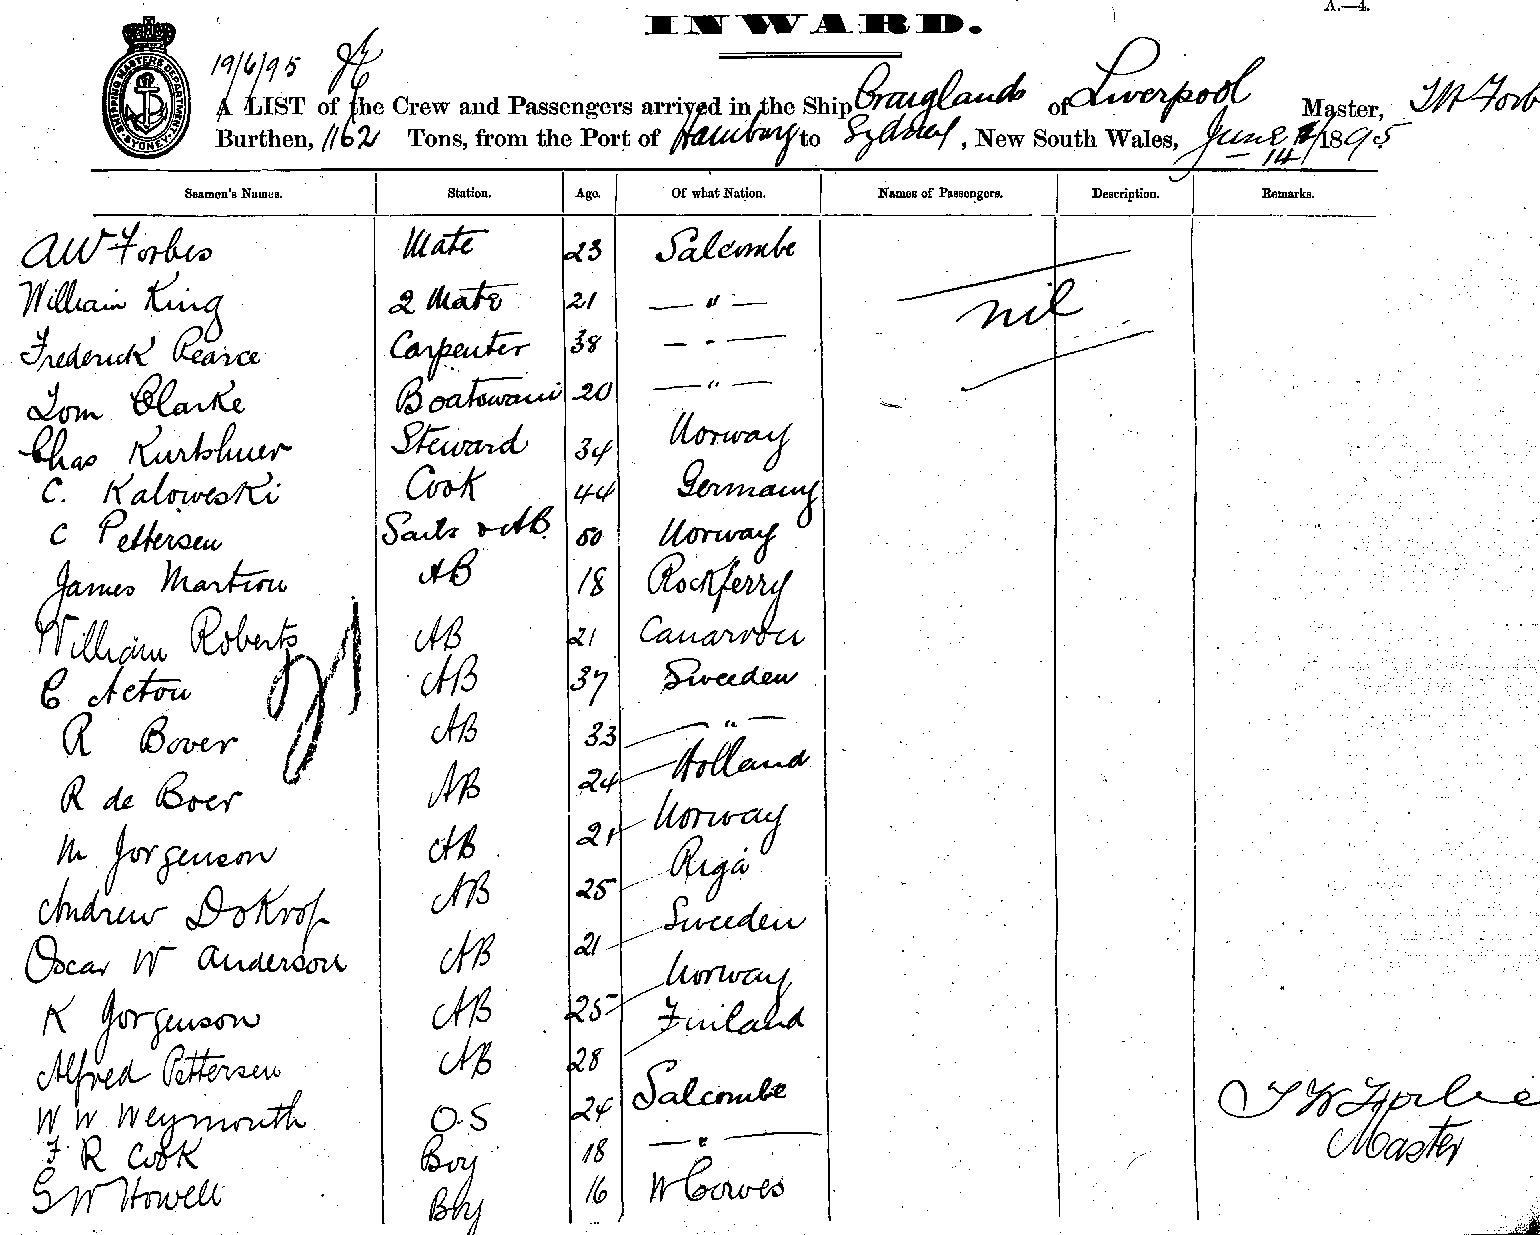 A.—4.
INWARD.
SHIPPING MASTERS DEPARTMENT SYDNEY
19/6/95
A LIST of the Crew and Passengers arrived in the Ship Craiglands of Liverpool Master, T W Forb
Burthen, 1162 Tons, from the Port of Hamburg to Sydney, New South Wales, June 14/1895
Seamen's Names. Station. Age. Of what Nation. Names of Passengers. Description. Remarks.
A W Forbes Mate 23 Salcombe
William King 2 Mate 21 — " — nil
Frederick Pearce Carpenter 38 — " —
Tom Clarke Boatswain 20 — " —
Chas Steward 34 Norway
C. Kaloweski Cook 44 Germany
C Pettersen Sails & AB 50 Norway
James Martion AB 18 Rockferry
William Roberts AB 21 Canarvon
C Acton AB 37 Sweeden
R Bover AB 33 — " —
R de Boer AB 24 Holland
M Jorgenson AB 21 Norway
Andrew Dokrop AB 25 Riga
Oscar W Anderson AB 21 Sweeden
K Jorgenson AB 25 Norway
Alfred Pettersen AB 28 Finland
W W Weymouth O.S 24 Salcombe
F R Cook Boy 18 — " —
G W Howell Boy 16 W Cowes
T W Forbes
Master